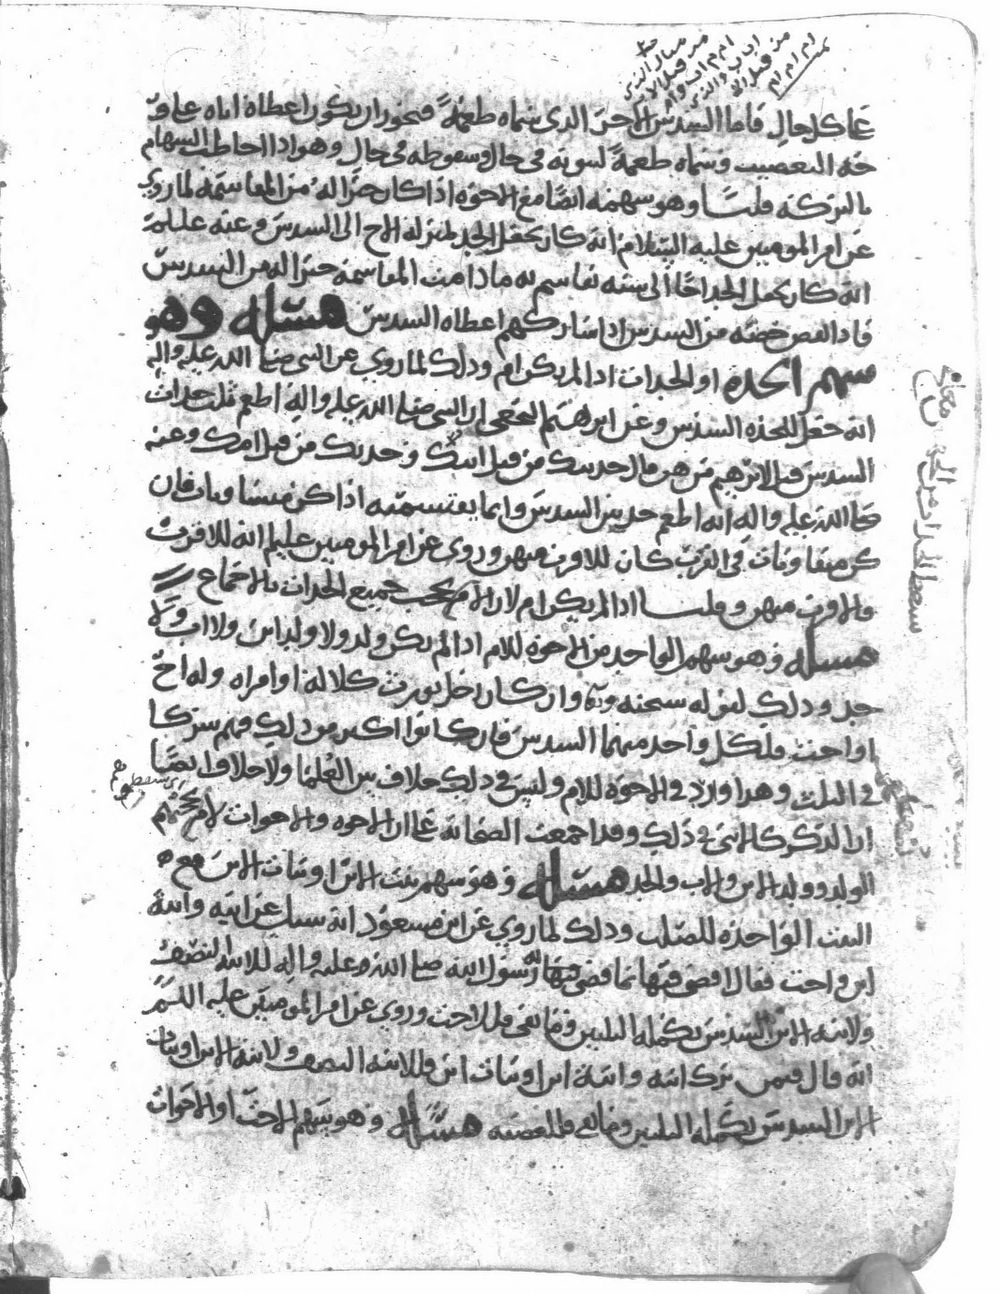 على كل حال فاما السدس الاخر الذي سماه طعمة فيجوز ان يكون اعطاه اياه على و
جه التعصيب وسماه طعمة لثبوته في حال وسقوطه في حال وهو اذا احاطت السهام
بالتركة قلنا وهو سهمه ايضا مع الاخوة اذا كان خيرا له من المقاسمة لما روي
عن امير المومنين عليه السلام انه كان يجعل الجد بمنزلة الاخ الى السدس وعنه عليلم
انه كان يجعل الجد اخا الى ستة يقاسم به ما دامت المقاسمة خيرا له من السدس
فاذا نقص حصته من السدس اذا شاركهم اعطاه السدس مسئلة وهو
سهم الجدة او الجدات اذا لم يكن ام وذلك لما روي عن النبي صلى الله عليه واله
انه جعل للجدة السدس وعن ابرهيم النخعي ان النبي صلى الله عليه واله اطعم ثلث جدات
السدس قيل لابرهيم من هن قال جدتيك من قبل ابيك وجدتك من قبل امك وعنه
صلى الله عليه واله انه اطعم جدتين السدس وانما يقتسمنه اذا كن متساويات فان
كن متفاوتات في القرب كان للاقرب منهن وروي عن امير المومنين عليلم انه للاقرب
فالاقرب منهن وقلنا اذا لم يكن ام لان الام تحجب جميع الجدات بالاجماع
مسئلة وهو سهم الواحد من الاخوة للام اذا لم يكن ولد ولا ولد ابن ولا اب ولا
جد وذلك لقوله سبحنه وتع وان كان رجل يورث كلالة او امراه وله اخ
او اخت فلكل واحد منهما السدس فان كانوا اكثر من ذلك فهم شركا
في الثلث وهذا وارد في الاخوة للام وليس في ذلك خلاف بين العلما ولا خلاف ايضا
ان الذكر كالانثى في ذلك وقد اجمعت الصحابة على ان الاخوة والاخوات لام يحجبهم
الولد وولد الابن والاب والجد مسئلة وهو سهم بنت الابن او بنات الابن مع
البنت الواحدة للصلب وذلك لما روي عن ابن مسعود انه سيل عن ابنه وابنة
ابن واخت فقال اقضي فيها بما قضى فيها رسول الله صلى الله عليه واله للابنة النصف
ولابنة الابن السدس تكملة الثلثين وما بقي فللاخت وروي عن امير المومنين عليه السلم
انه قال فيمن ترك ابنه وابنة ابن او بنات ابن فللابنه النصف ولابنة الابن او بنات
الابن السدس تكملة الثلثين وما بقي فللعصبة مسئلة وهو سهم الاخت او الاخوات